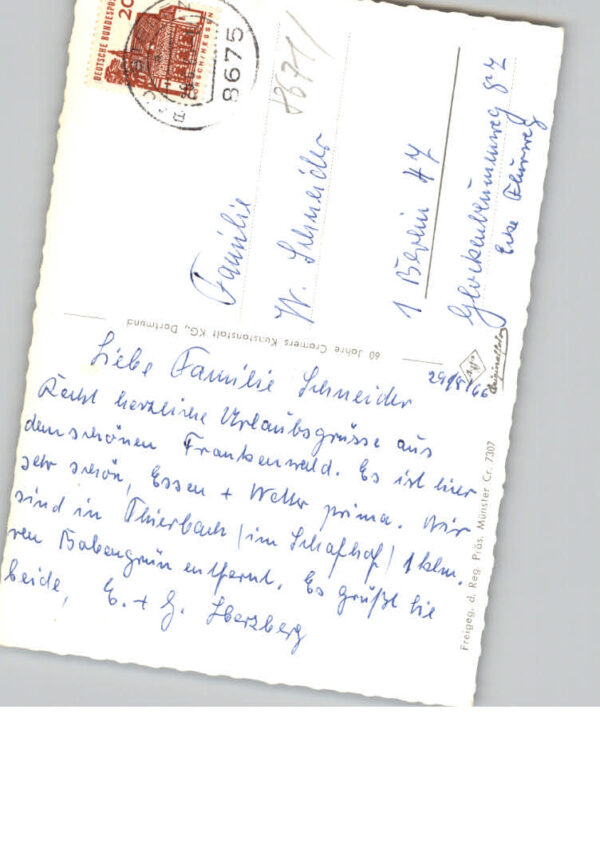 DEUTSCHE BUNDESPOST
20
8675
Familie
W. Schneider
1 Berlin 47
Glockenblumenweg 87
Ecke Flurweg
60 Jahre Cramers Kunstanstalt KG., Dortmund
Originalfoto
29/8/66
Liebe Familie Schneider
Recht herzliche Urlaubsgrüsse aus
dem schönen Frankenwald. Es ist hier
sehr schön, Essen + Wetter prima. Wir
sind in Thierbach (im Schafhof) 1 klm.
von Bobengrün entfernt. Es grüßt Sie
beide, E. + G. Herzberg
Freigeg. d. Reg. Präs. Münster Cr. 7307